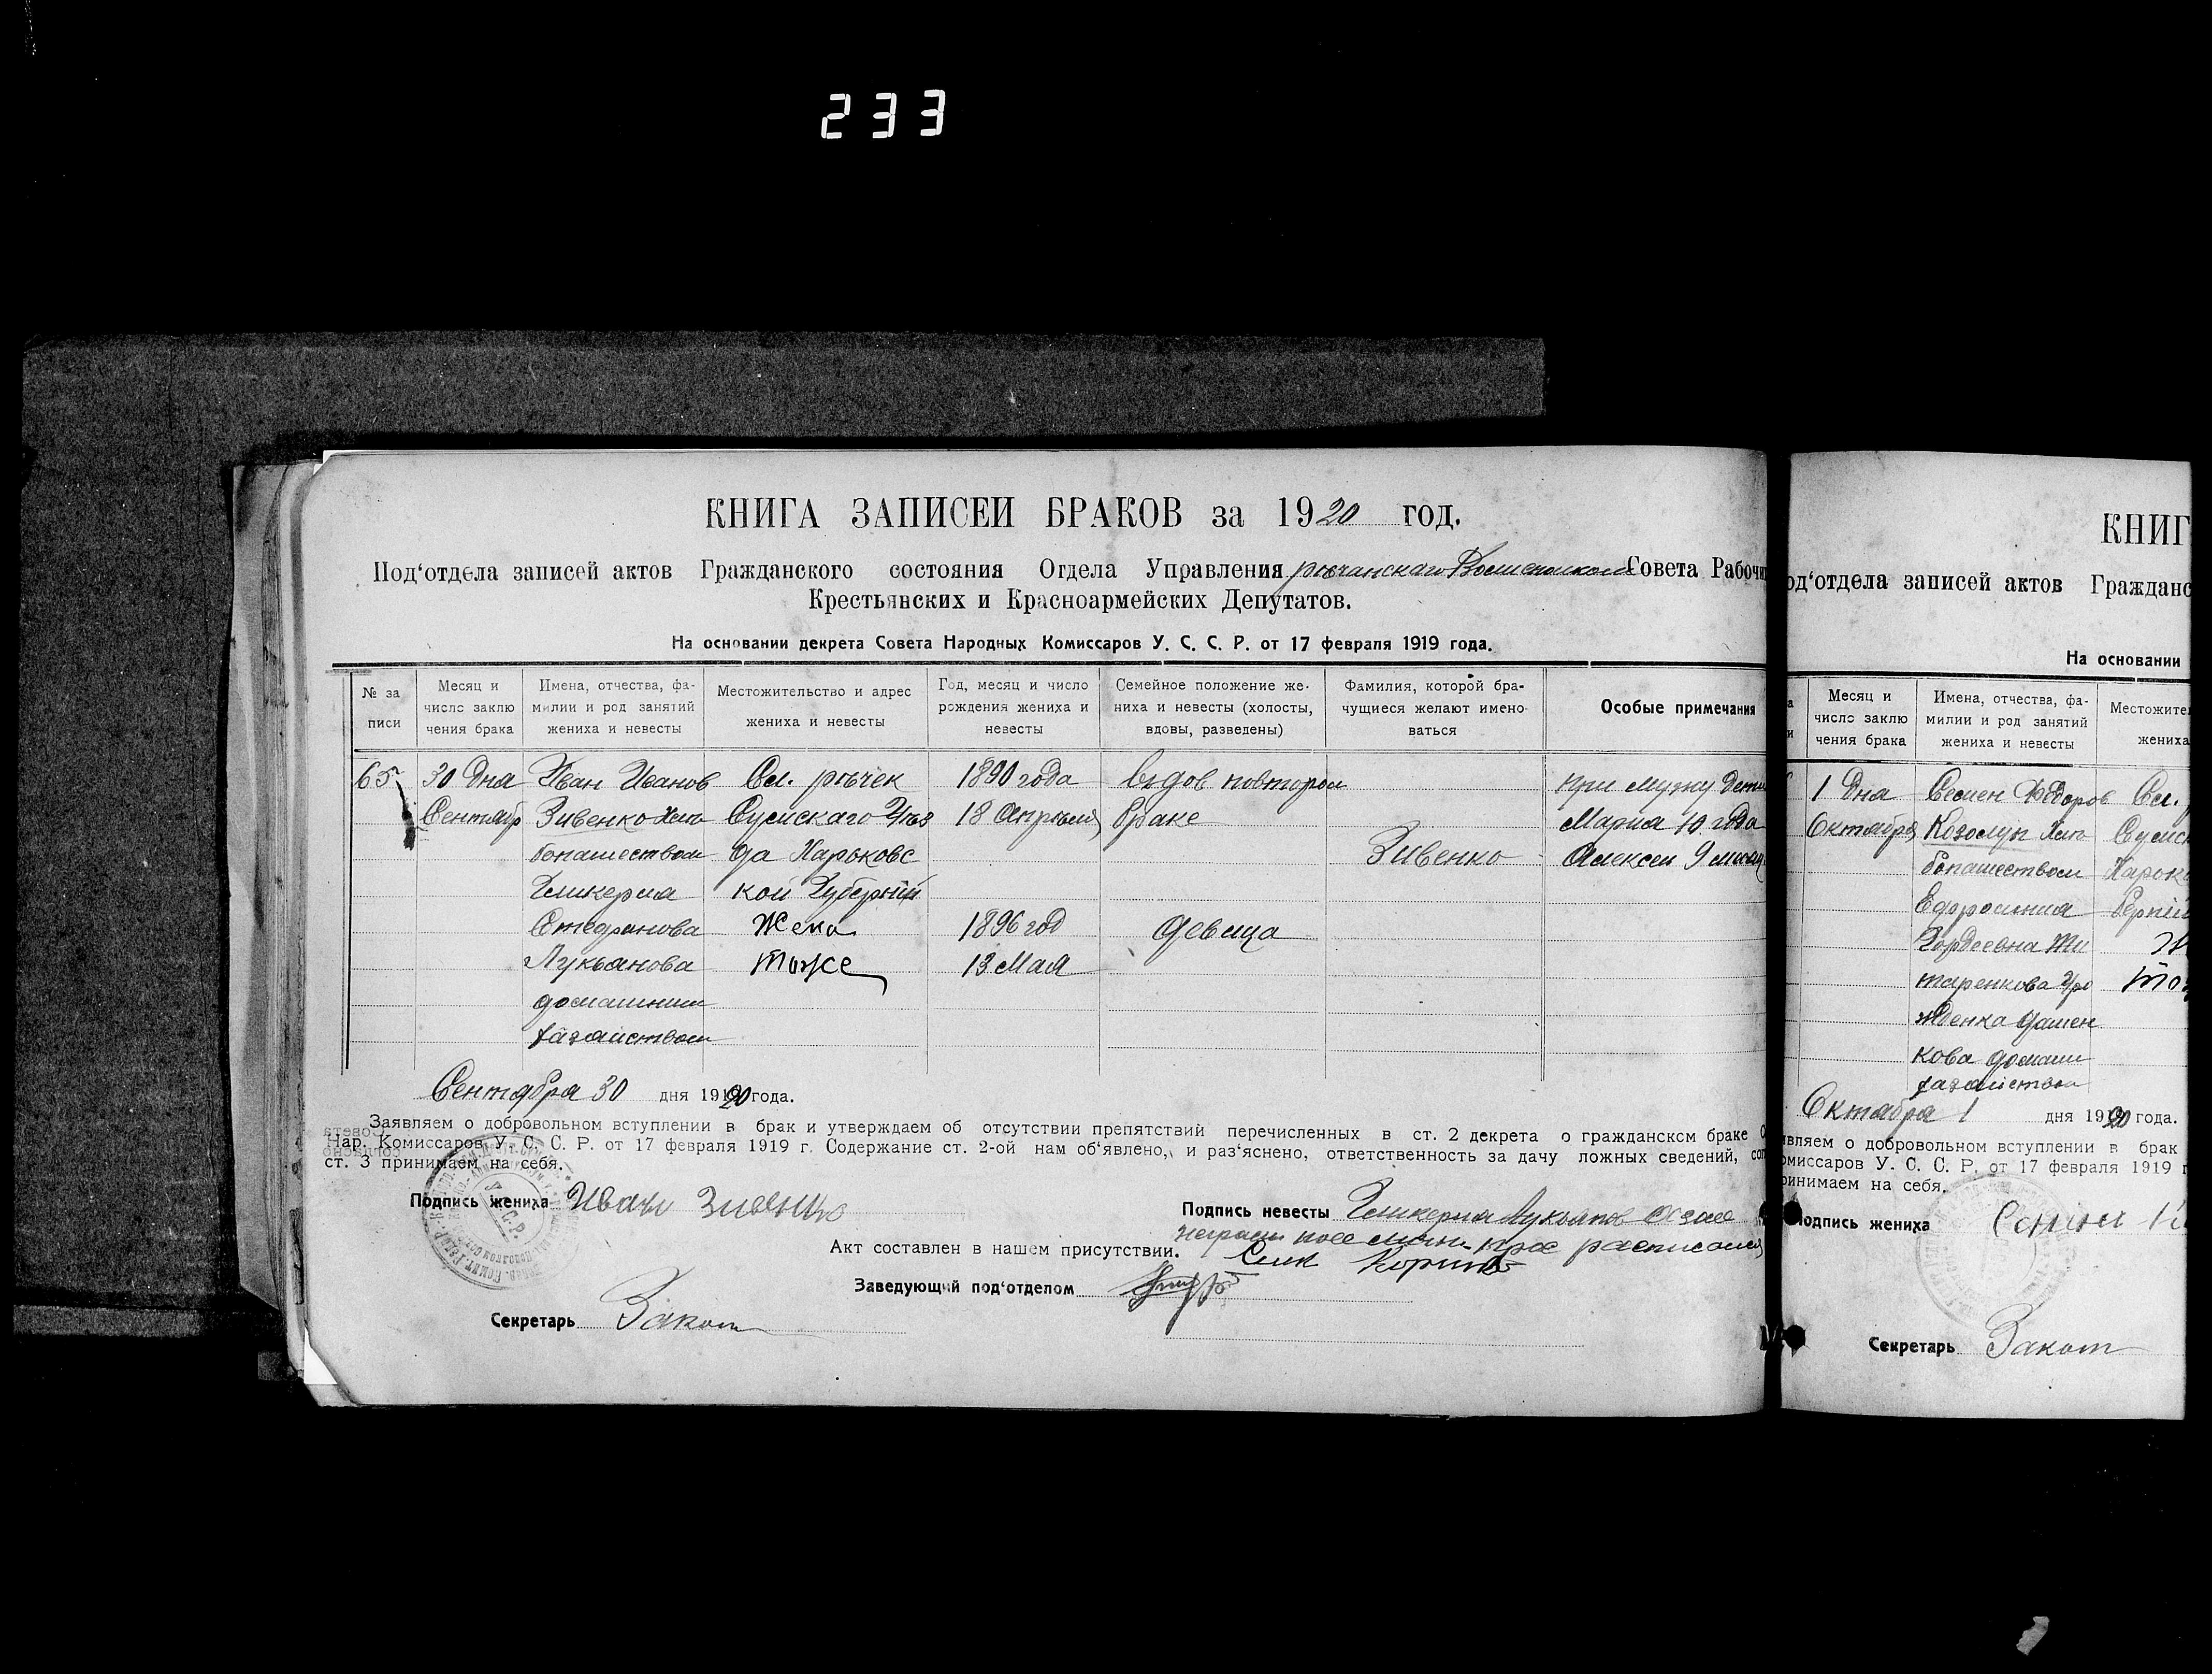 233
КНИГА ЗАПИСЕЙ БРАКОВ за 1920 год.
Под'отдела записей актов Гражданского состояния Отдела Управления Совета Рабочи
Крестьянских и Красноармейских Депутатов.
На основании декрета Совета Народных Комиссаров У. С. С. Р. от 17 февраля 1919 года.
№ за писи
Месяц и число заклю чения брака
Имена, отчества, фа- милии и род занятий жениха и невесты
Местожительство и адрес жениха и невесты
Год, месяц и число рождения жениха и невесты
Семейное положение же- ниха и невесты (холосты, вдовы, разведены)
Фамилия, которой бра- чущиеся желают имено- ваться
Особые примечания
65 30 Дня Иван Иванов Сл. речек 1890 года Вдов повтором при мужу дети
Сентябр Зивенко Хле Сумскаго Уез 18 Апреля браке Мария 10 года
бопашеством да Харьковс Зивенко Алексеи 9
Гликерия кой Губернии
Стефанова Жена 1896 год девица
Лукьянова тоже 13 Мая
домашним
хазайством
Сентября 30 дня 1920 года.
Заявляем о добровольном вступлении в брак и утверждаем об отсутствии препятствий перечисленных в ст. 2 декрета о гражданском браке
Нар. Комиссаров У. С. С. Р. от 17 февраля 1919 г. Содержание ст. 2-ой нам об'явлено, и раз'яснено, ответственность за дачу ложных сведений, сог
ст. 3 принимаем на себя.
Подпись жениха Иван Зивенко
Подпись невесты Гликерия Лукьянов а за ее
расписался
Акт составлен в нашем присутствии.
Заведующий под'отделом
Секретарь Закот
КНИГ
од'отдела записей актов Гражданс
На основании
Месяц и число заклю чения брака
Имена, отчества, фа- милии и род занятий жениха и невесты
Местожител жениха
1 Дня Семен Федоров Сл.
Октября Козолуп Хле Сумск
бопашеством Харьк
Ефросиния берний
Гордеевна Жи
таренкова Уро то
жденка Дашен
кова домаш
хазайством
Октября 1 дня 1920 года.
вляем о добровольном вступлении в брак
омиссаров У. С. С. Р. от 17 февраля 1919 г
ринимаем на себя.
одпись жениха
Секретарь Закот